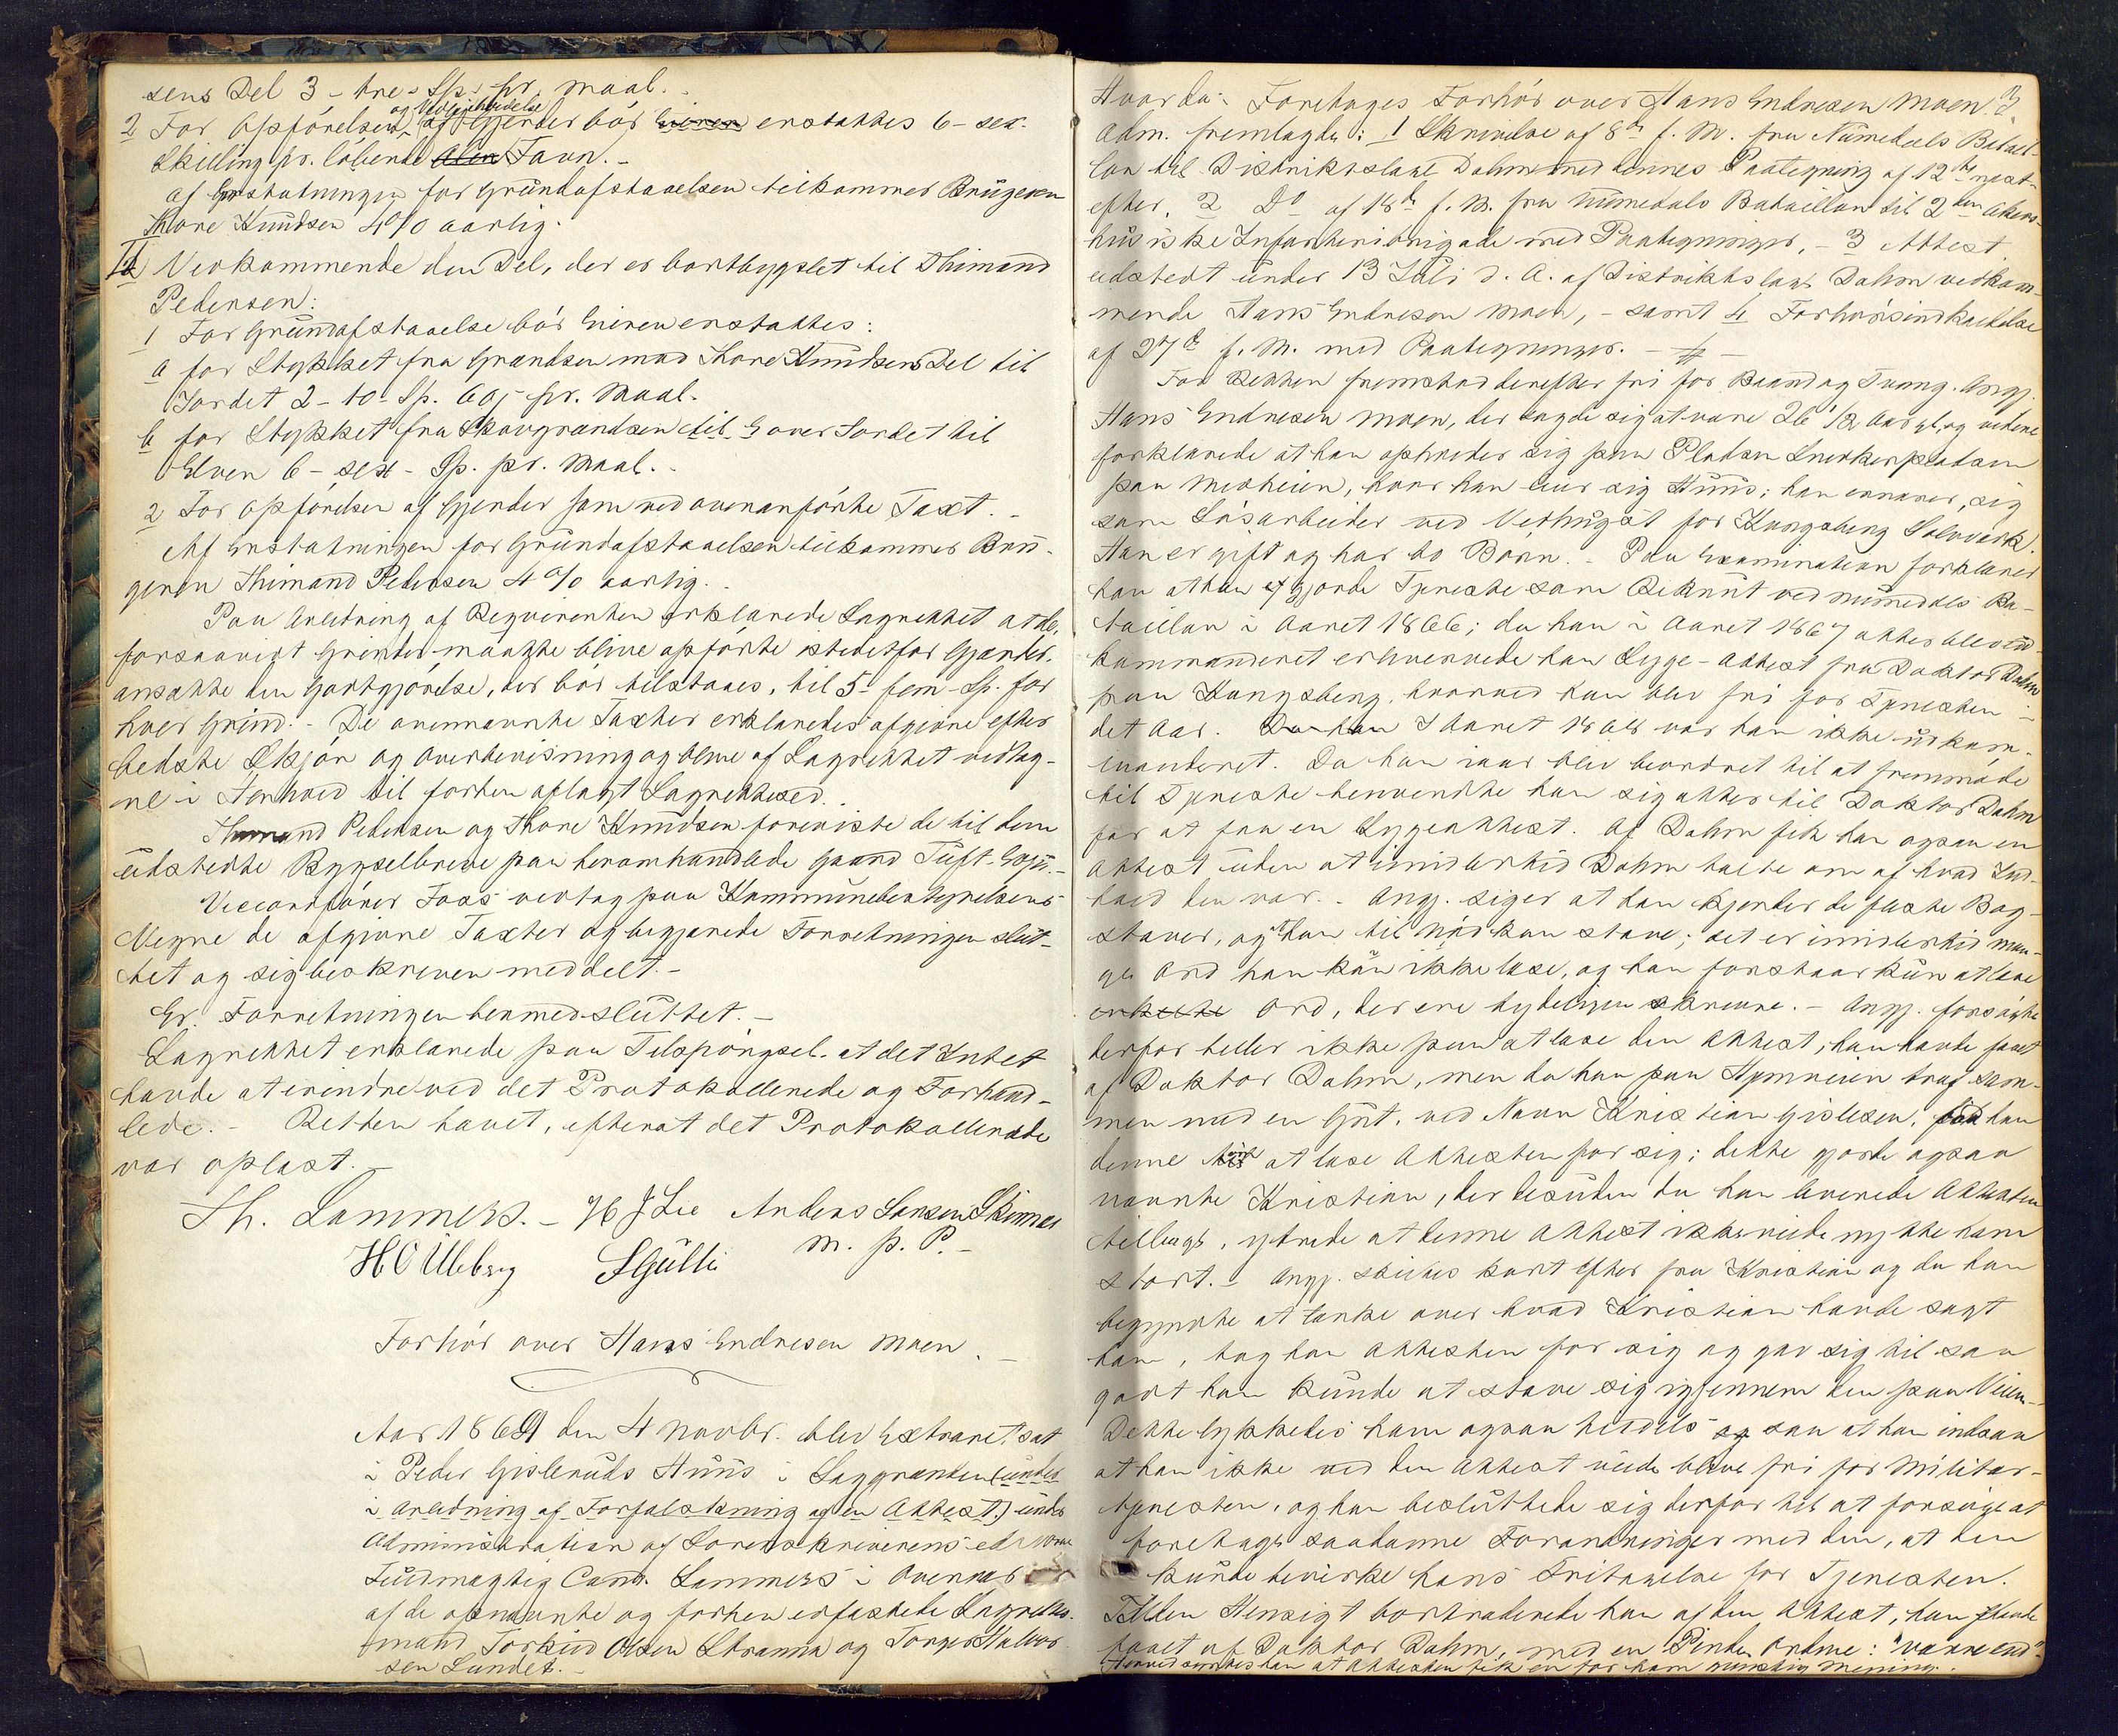 sens Del 3 - tre - Sp. pr. Maal. -
2 For Opførelsen og Vedligeholdelse af Gjerder bør Eieren erstattes 6 - sex -
Skilling pr. løbende Alen Favn. -
Af Erstatningen for Grundafstaaelsen tilkommer Brugeren
Thore Knudsen 4% aarlig.
II Vedkommende den Del, der er bortbygslet til Thimand
Pedersen:
1 For Grundafstaaelse bør Eieren erstattes:
a for Stykket fra Grændsen mod Thore Knudsens Del til
Jordet 2 - to - Sp. 60 pr. Maal.
b for Stykket fra Skovgrændsen til & over Jordet til
Elven 6 - sex - Sp. pr. Maal. -
2 For Opførelsen af Gjerder som ved ovenanførte Taxt. -
Af Erstatningen for Grundafstaaelsen tilkommer Bru-
geren Thimand Pedersen 4% aarlig. -
Paa Anledning af Reqvirenten erklærede Lagrettet at de,
forsaavidt Grinder maatte blive opførte istedetfor Gjerder,
ansatte den Godtgjørelse, der bør tilstaaes, til 5 - fem - Sp. for
hver Grind. - De ovennævnte Taxter erklæredes afgivne efter
bedste Skjøn og Overbevisning og bleve af Lagrettet vedtag-
ne i Henhold til forhen aflagt Lagrettesed. -
Thimand Pedersen og Thore Knudsen foreviste de til dem
udstedte Bygselbreve paa heromhandlede Gaard Tuft.
Viceordfører Foss vedtog paa Kommunebestyrelsens
Vegne de afgivne Taxter og begjærede Forretningen slut-
tet og sig beskreven meddelt. -
Er Forretningen hermed sluttet. -
Lagrettet erklærede paa Tilspørgsel at det Intet
havde at erindre ved det Protokollerede og Forhand-
lede. - Retten hævet, efterat det Protokollerede
var oplæst. -
Th. Lammers. - H J Lie Anders Larsen Skinnes
H O Ulleberg S Gulli m. p. P. -
Forhør over Hans Endresen Moen. -
Aar 1869 den 4 Novbr. blev Extraret sat
i Peder Gisleruds Huus i Laggrænden (under
i Anledning af Forfalskning af en Attest.) under
Administration af Sorenskriverens edsvorne
Fuldmægtig Cand. Lammers i Overvær
af de opnævnte og forhen edfæstede Lagrettes-
mænd Torkild Olsen Stranna og Torger Halvor-
sen Lundet. -
Hvorda: Foretages Forhør over Hans Endresen Moen.
Adm. fremlagde: 1 Skrivelse af 8de f. M. fra Numedals Batail-
lon til Distriktslæge Dahm med dennes Paategning af 12te næst-
efter, 2 Do af 18de f. M. fra Numedals Bataillon til 2den Akers-
husiske Infanteribrigade med Paategninger, - 3 Attest
udstedt under 13 Juli d. A. af Distriktslæge Dahm vedkom-
mende Hans Endresen Moen, - samt 4 Forhørsindkaldelse
af 27de f. M. med Paategninger. -
For Retten fremstod derefter fri for Baand og Tvang Angj.
Hans Endresen Moen, der sagde sig at være 26 1/2 Aar gl, og videre
forklarede at han opholder sig paa Pladsen Snekkerpladsen
paa Medheien, hvor han eier sig Huus; han ernærer sig
som Løsarbeider ved Vedhugst for Kongsberg Sølvværk.
Han er gift og har to Børn. - Paa Examination forklarer
han at han gjorde Tjeneste som Rekrut ved Numedals Ba-
taillon i Aaret 1866; da han i Aaret 1867 atter blev ud-
kommanderet erhvervede han Læge-Attest fra Doktor Dahm
paa Kongsberg, hvorved han blev fri for Tjenesten i
det Aar. Da han I Aaret 1868 var han ikke udkom-
manderet. Da han iaar blev beordret til at fremmøde
til Tjeneste henvendte han sig atter til Doktor Dahm
for at faa en Lægeattest. Af Dahm fik han ogsaa en
Attest uden at imidlertid Dahm talte om af hvad Ind-
hold den var. - Angj. siger at han kjender de fleste Bog-
staver, og han til Nød kan stave; det er imidlertid man-
ge Ord han kan ikke læse, og han forstaar kun at læse
enkelte Ord, der ere tydeligen skrevne. - Angj. forsøgte
derfor heller ikke paa at læse den Attest, han havde faaet
af Doktor Dahm, men da han paa Hjemveien traf sam-
men med en Gut, ved Navn Kristian Gislesen, bad han
denne at læse Attesten for sig; dette gjorde ogsaa
nævnte Kristian, der desuden da han leverede Attesten
tilbage, ytrede at denne Attest ikke vilde nytte ham
stort. - Angj. skiltes kort efter fra Kristian og da han
begyndte at tænke over hvad Kristian havde sagt
ham, tog han Attesten for sig og gav sig til saa
godt han kunde at stave sig igjennem den paa Veien. -
Dette lykkedes ham ogsaa heldels og saa at han indsaa
at han ikke ved den Attest vilde blive fri for Militær-
tjenesten, og han besluttede sig derfor til at forsøge at
foretage saadanne Forandringer med den, at den
kunde bevirke hans Fritagelse for Tjenesten.
I den Hensigt bortraderede han af den Attest, han havde
faaet af Doktor Dahm, med en Pinde, Ordene: "være end".
Herved syntes han at Attesten fik en for ham gunstig Mening.